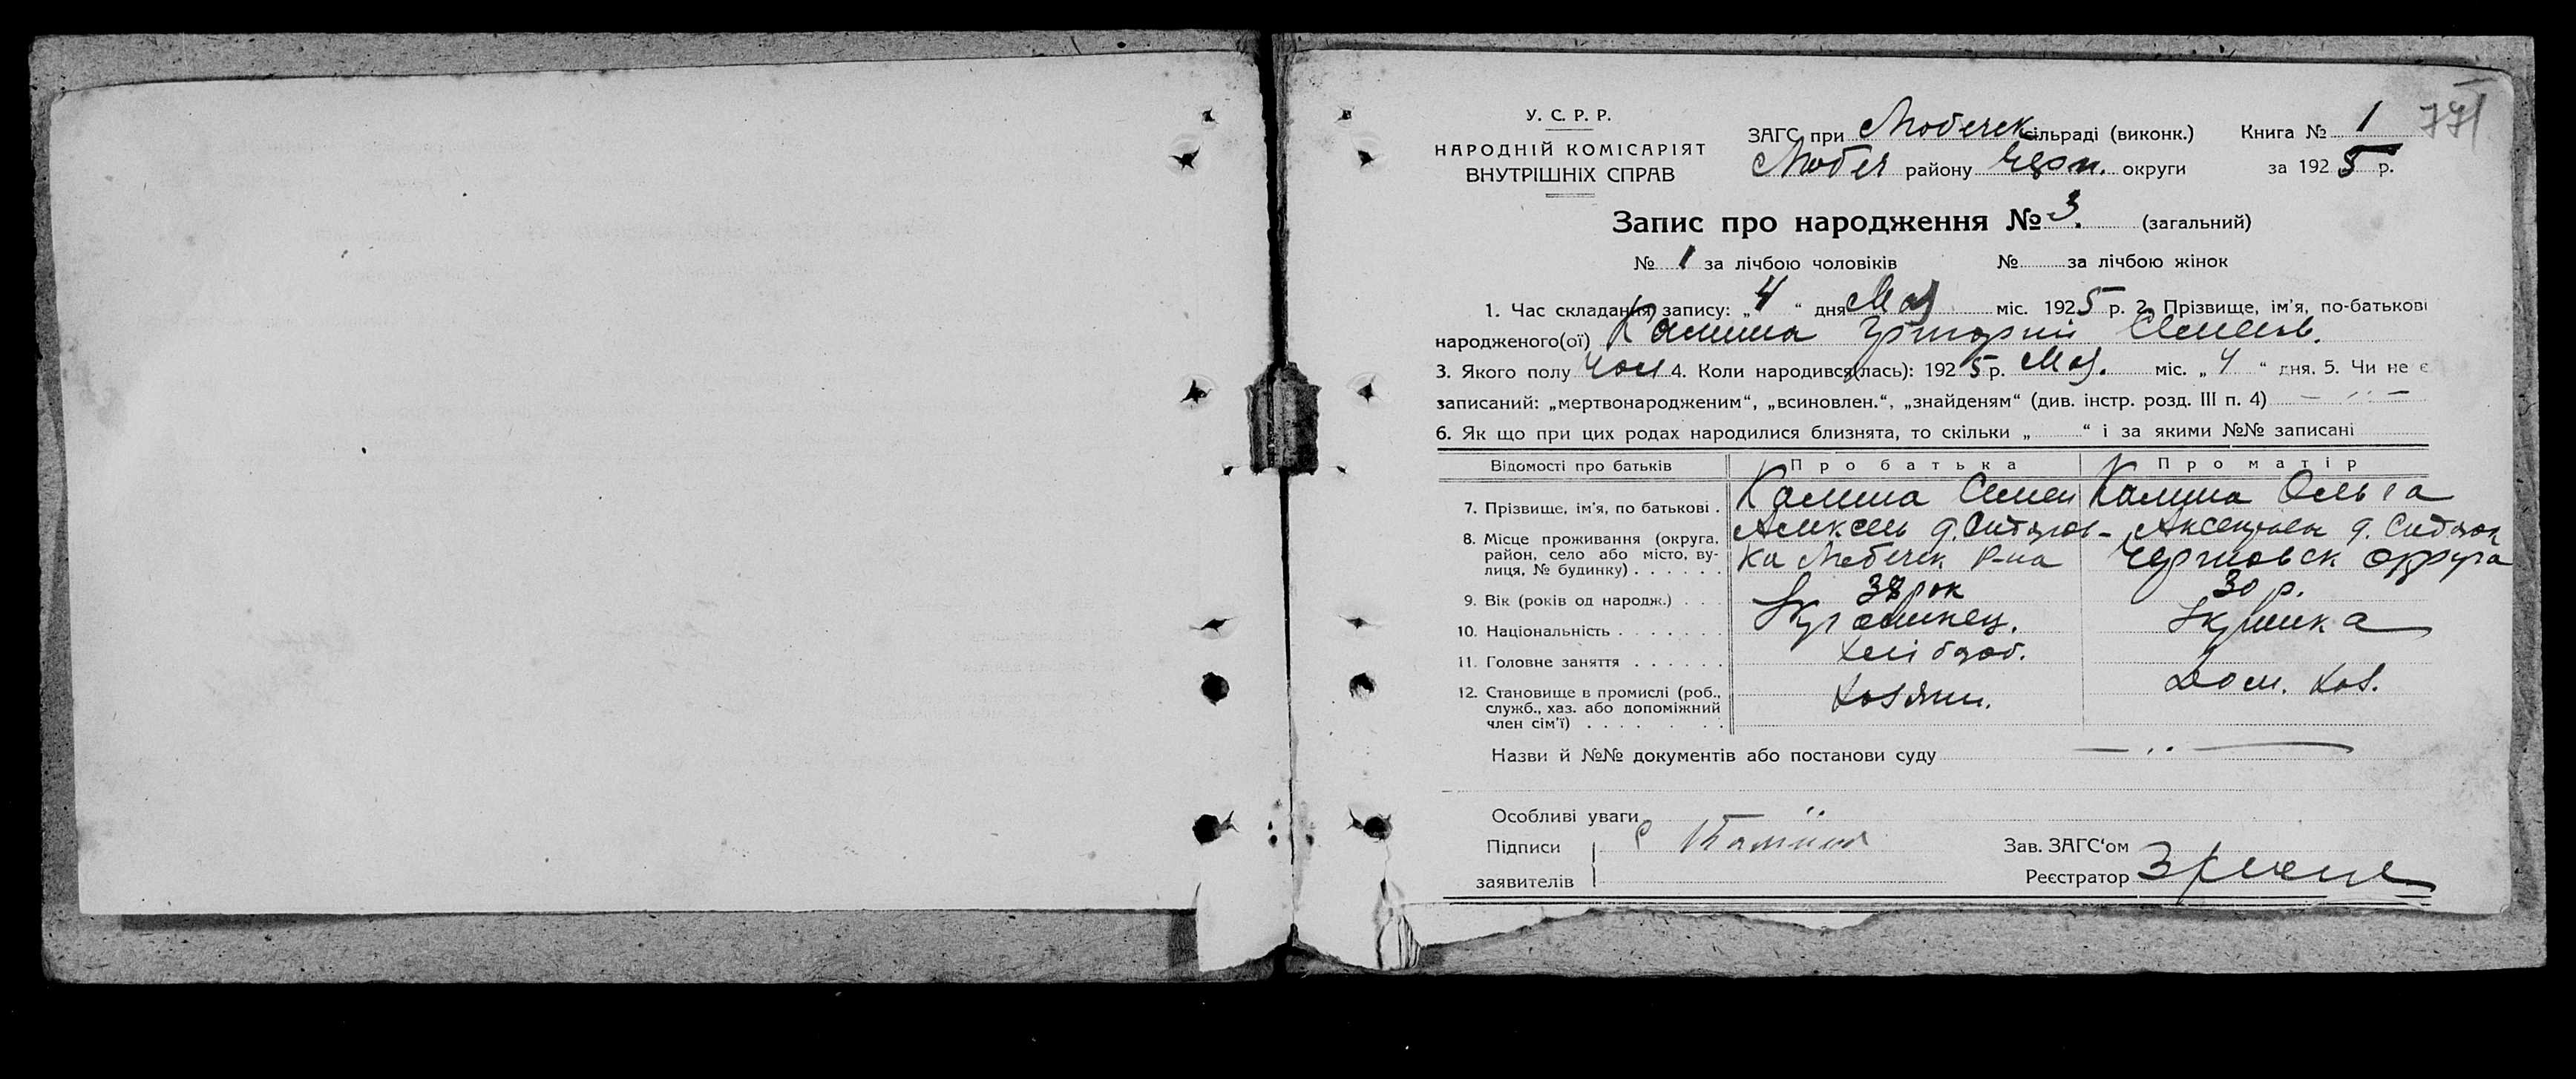 771
У. С. Р. Р.
НАРОДНІЙ КОМІСАРІЯТ
ВНУТРІШНІХ СПРАВ
ЗАГС при Любечск сільраді (виконк.) Книга № 1
Любеч району Черн. округи за 1925 р.
Запис про народження № 3. (загальний)
№ 1 за лічбою чоловіків № за лічбою жінок
1. Час складання запису: „4“ дня Мая міс. 1925 р. 2. Прізвище, ім'я, по-батькові
народженого(ої) Калина Григорий Семенов.
3. Якого полу чол 4. Коли народився(лась): 1925 р. Мая. міс. „4“ дня. 5. Чи не є
записаний: „мертвонародженим“, „всиновлен.“, „знайденям“ (див. інстр. розд. III п. 4) — „ —
6. Як що при цих родах народилися близнята, то скільки „ “ і за якими №№ записані
Відомості про батьків Про батька Про матір
7. Прізвище, ім'я, по батькові . Калина Семен Калина Ольга
8. Місце проживання (округа, район, село або місто, вулиця, № будинку) . . . . . .
Ка Любечск р-на округа
9. Вік (років од народж.) . . . 38 рок 30 р.
10. Національність . . . . . . . Украинец.
11. Головне заняття . . . . . . хлібороб.
12. Становище в промислі (роб., служб., хаз. або допоміжний член сім'ї) . . . . . . . Хозяин. Дом. хоз.
Назви й №№ документів або постанови суду — „ —
Особливі уваги „
Підписи С Калина Зав. ЗАГС'ом
заявителів Реєстратор